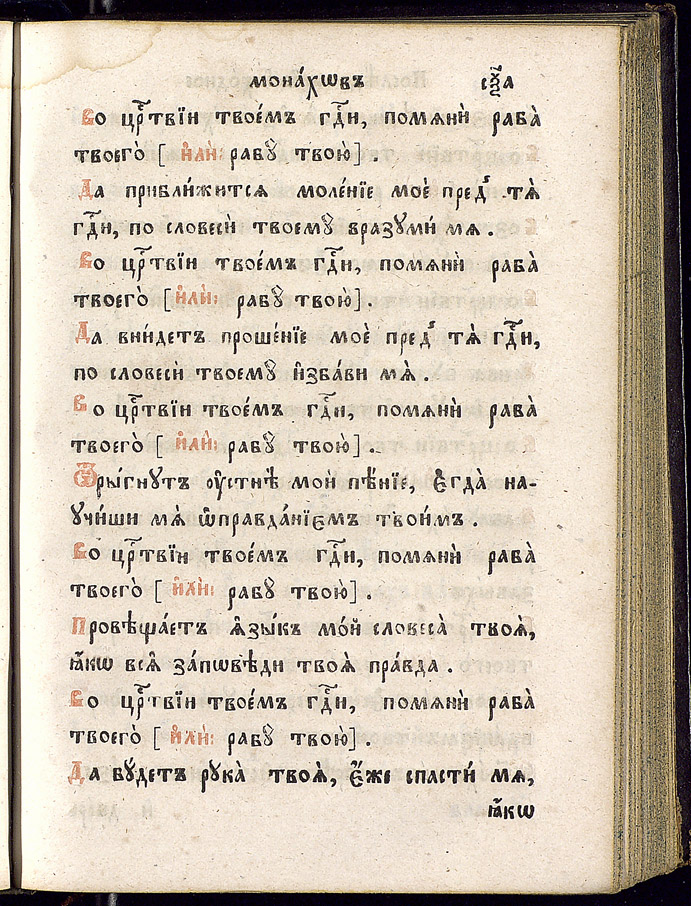 мона́хѡвъ сѯ҃а
Во црⷭ҇твїи твое́мъ гдⷭ҇и, помѧнѝ раба̀
твоего̀ [ и҆лѝ: рабꙋ̀ твою̀] .
Да прибли́житсѧ моле́нїе моѐ пред̾ тѧ̀
гдⷭ҇и, по словесѝ твоемꙋ̀ вразꙋми́ мѧ .
Во црⷭ҇твїи твое́мъ гдⷭ҇и, помѧнѝ раба̀
твоего̀ [и҆лѝ: рабꙋ̀ твою̀] .
Да вни́детъ проше́нїе моѐ пред̾ тѧ̀ гдⷭ҇и,
по словесѝ твоемꙋ̀ и҆зба́ви мѧ̀ .
Во црⷭ҇твїи твое́мъ гдⷭ҇и, помѧнѝ раба̀
твоего̀ [ и҆лѝ: рабꙋ̀ твою̀] .
Ѿры́гнꙋтъ ᲂу҆стнѣ̀ моѝ пѣ́нїе, є҆гда̀ на-
ꙋчи́ши мѧ̀ ѡ҆правда́нїємъ твои̑мъ .
Во црⷭ҇твїи твое́мъ гдⷭ҇и, помѧнѝ раба̀
твоего̀ [ и҆лѝ: рабꙋ̀ твою̀] .
Провѣща́етъ ѧ҆зы́къ мо́й словеса̀ твоѧ̑,
ꙗ҆́кѡ всѧ̑ за́пѡвѣди твоѧ̑ пра́вда .
Во црⷭ҇твїи твое́мъ гдⷭ҇и, помѧнѝ раба̀
твоего̀ [ и҆лѝ: рабꙋ̀ твою̀] .
Да бꙋ́детъ рꙋка̀ твоѧ̀, є҆́же спастѝ мѧ,
ꙗ҆́кѡ